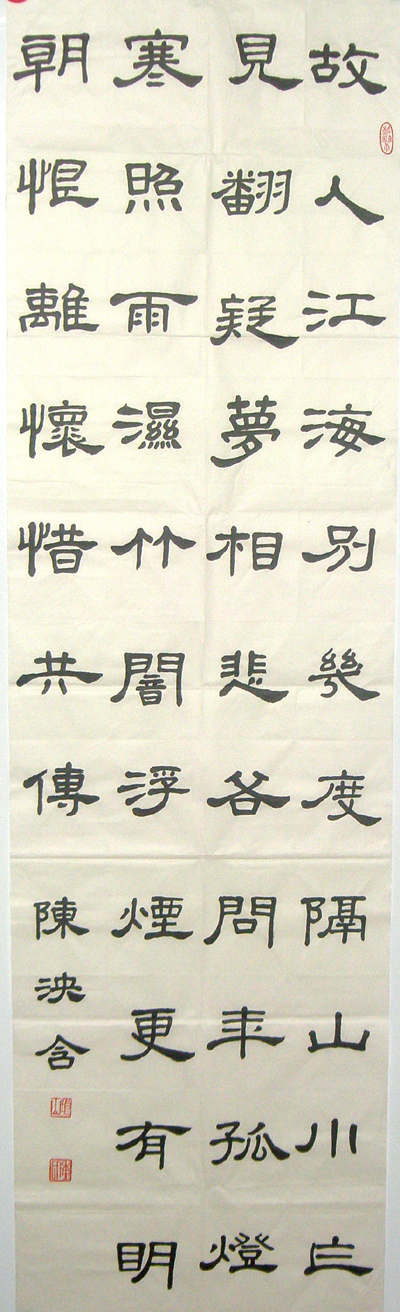 故人江海別幾度隔山川乍
見翻疑夢相悲各問年孤燈
寒照雨濕竹闇浮煙更有明
朝恨離懷惜共傳
陳泱含